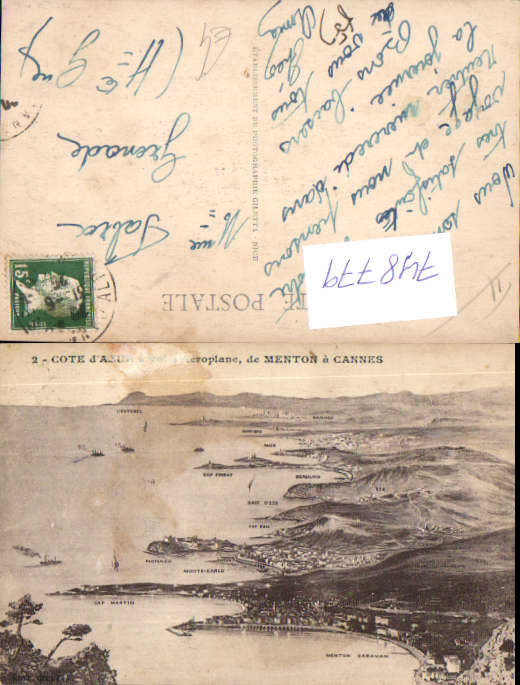 Nous sommes
très satisfaites
voyage et nous pensons
rentrer mercredi dans
la journée
Bons baisers
de vous tous
Mme
Fabra
Grenade
(Hte Gne)
ÉTABLISSEMENT DE PHOTOGRAPHIE GILETTA NICE
TE POSTALE
15c
748779
2 - COTE d'AZUR aéroplane, de MENTON à CANNES
L'ESTEREL
ANTIBES
NICE
CAP FERRAT
BEAULIEU
EZE
BAIE D'EZE
CAP D'AIL
MONACO
MONTE-CARLO
CAP MARTIN
MENTON GARAVAN